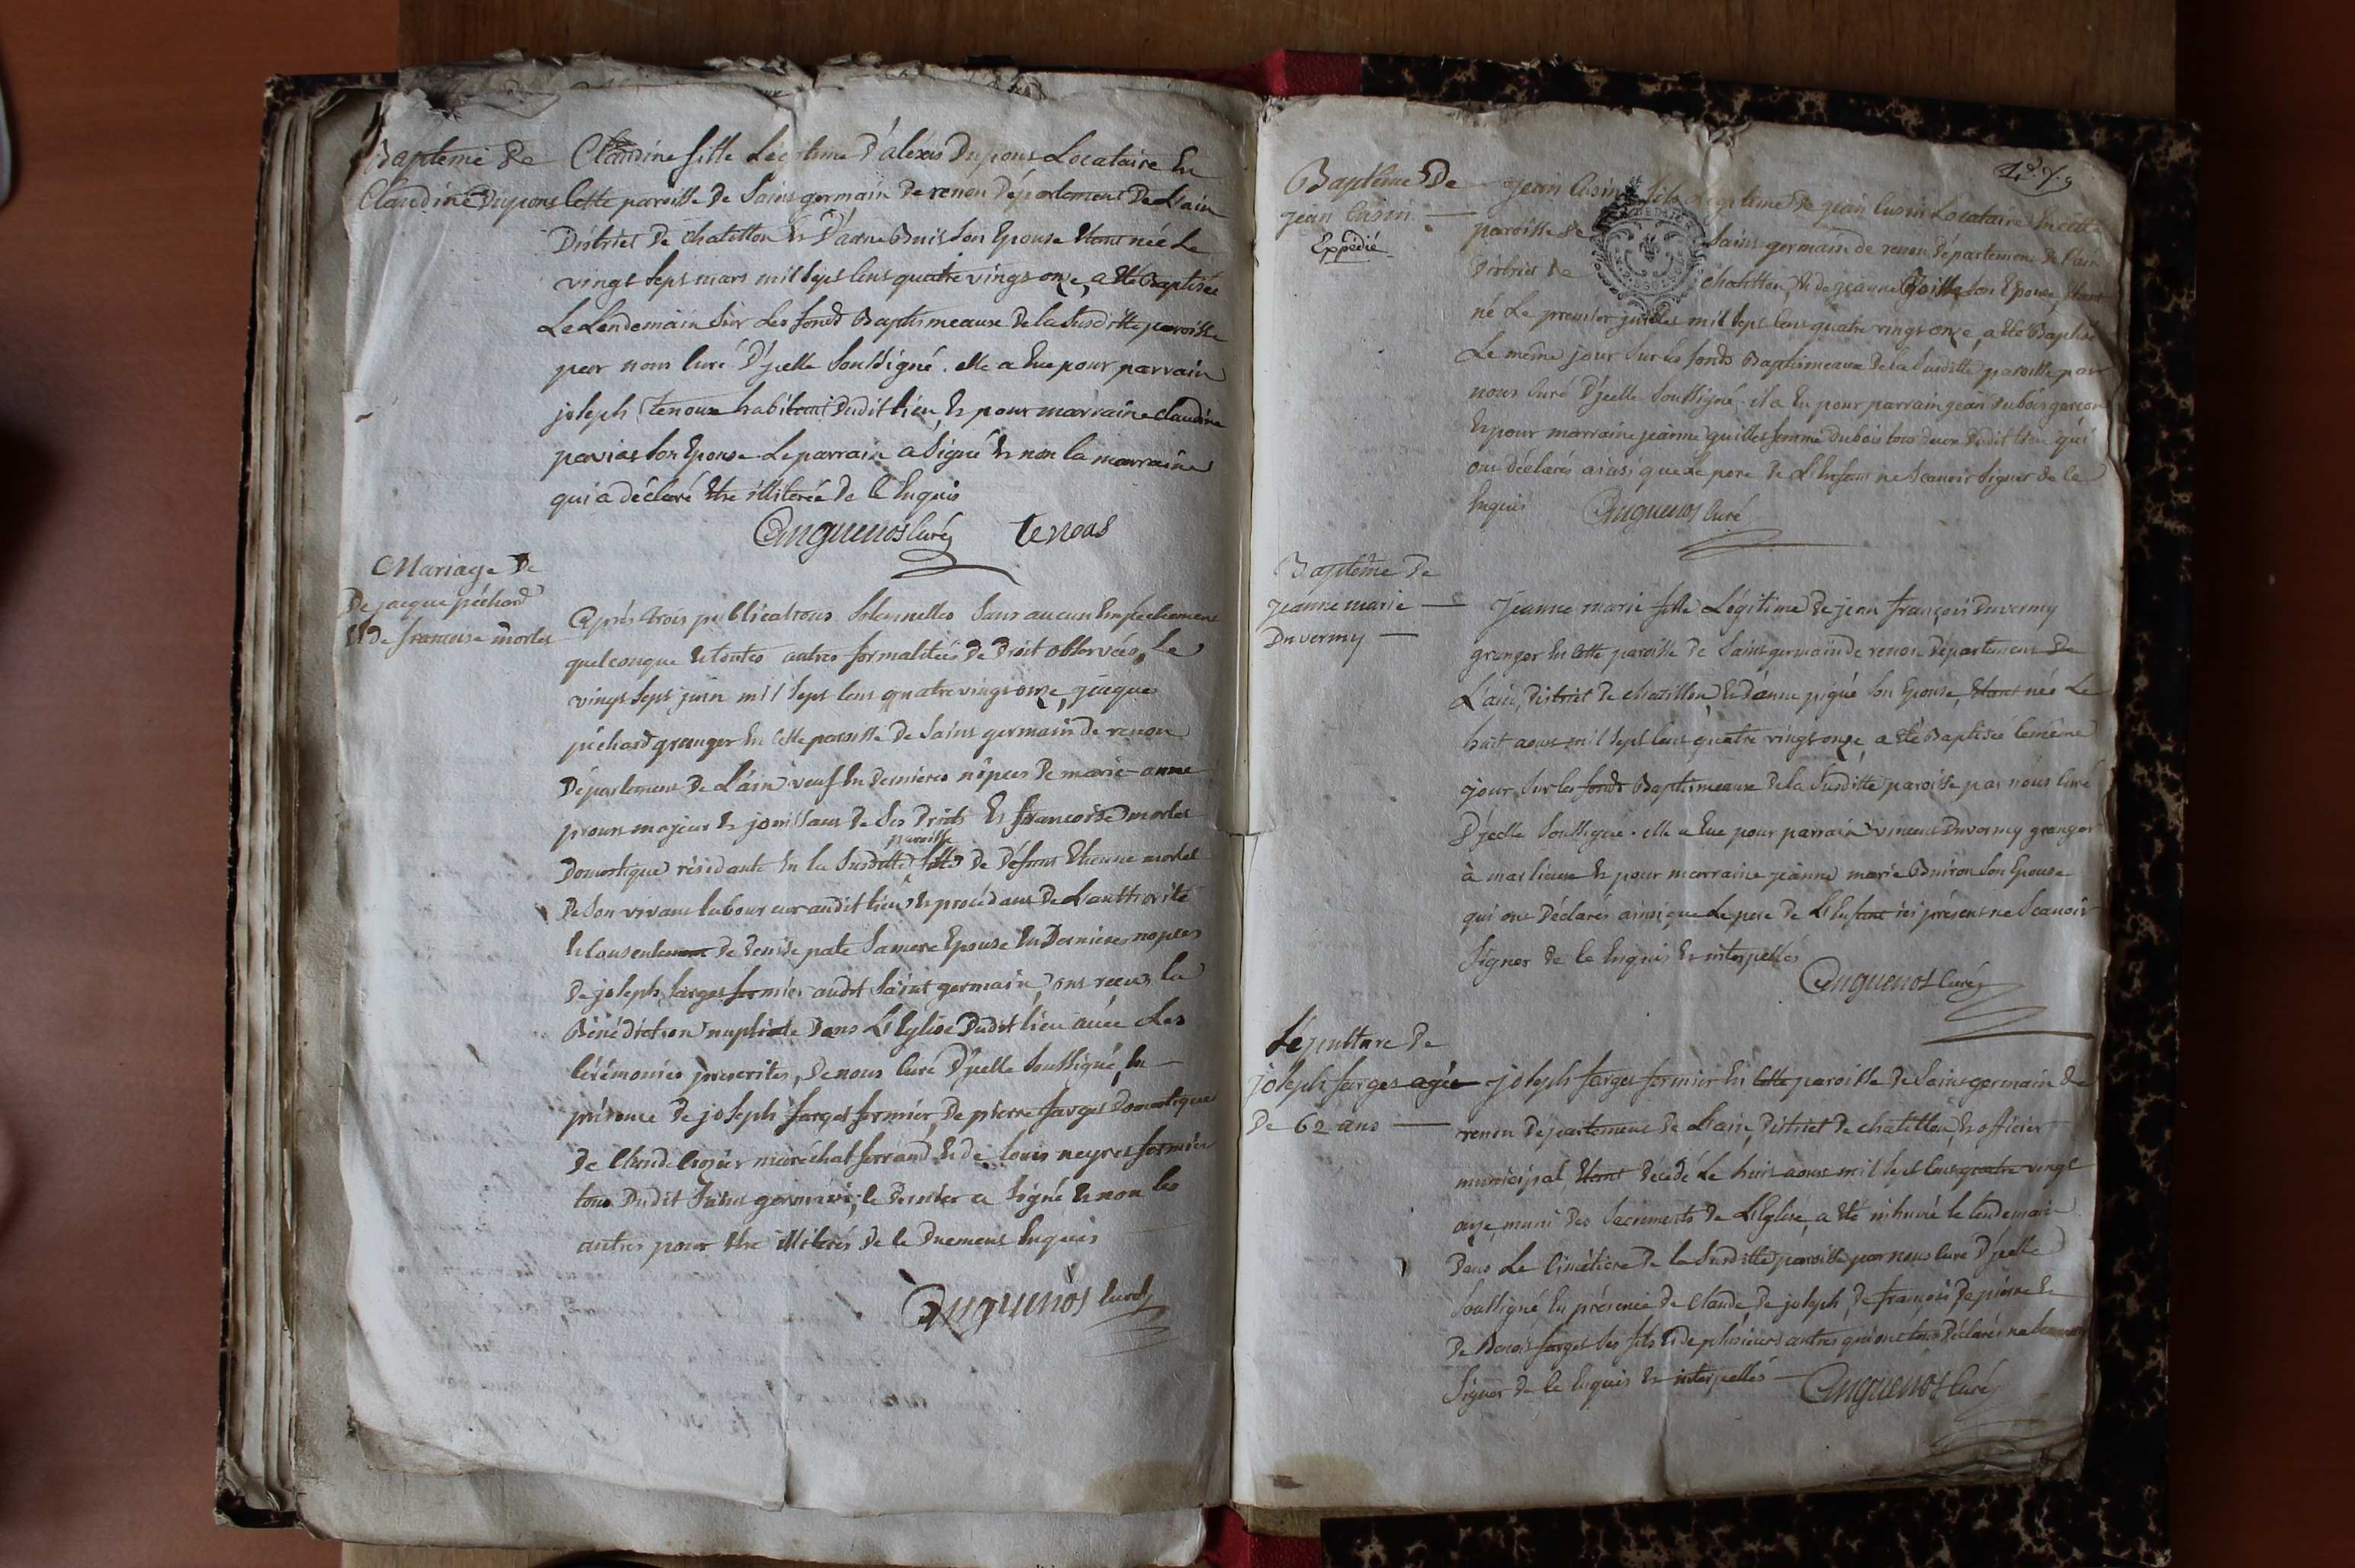 Baptême de
Claudine Dupons
Claudine fille Légitime d'aléxis Dupons Locataire En
Cette paroisse de Saint germain de renon Département De L'ain
District De chatillon Et D'anne Buis son Epouse Etant née Le
vingt Sept mars mil Sept Cens quatre vingt onze, a été Baptisée
Le Lendemain Sur Les fonds Baptismeaux De la Susditte paroisse
par nous Curé D'jcelle Soussigné. elle a Eue pour parrain
joseph tenoux habitant Dudit lieu, Et pour marraine claudine
pavias son Epouse. Le parrain a Signé Et non la marraine
qui a déclaré Etre illiterée De Ce Enquis
Anguenos Curé tenous
Mariage De
De jacque péchard
Et de francoise morlet
Après trois publications Solennelles Sans aucun Empêchement
quelconque Et toutes autres formalitées De Droit observées, Le
vingt Sept juin mil Sept Cens quatre vingt onze, jacque
péchard granger En Cette paroisse De Saint germain De renon
Département De L'ain veuf En Dernieres nôpces De marie-anne
proux majeur Et jouissant De Ses Droits Et francoise morlet
paroisse
Domestique résidante En la Susditte fille De Défunt Etienne morlet
De Son vivant laboureur audit lieu Et procédant De L'authorité
Et Consentement De Denise pate Sa mere Epouse En Dernieres nopces
De joseph farges fermier audit Saint germain, ont recus la
Bénédiction nuptiale Dans L'Eglise Dudit lieu avec Les
Cérémonies prescrites, De nous Curé D'jcelle Soussigné, En
présence De joseph farges fermier, De pierre farges Domestique
De Claude Crosier maréchal ferrand Et De Louis neyret fermier
tous Dudit Saint germain; le Dernier a Signé Et non les
autres pour Etre illiterés De Ce Duement Enquis
Anguenos Curé
Baptême De
jean Cusin
Expédié
jean Cusin fils Légitime De jean Cusin Locataire En Cette
paroisse De Saint germain de renon Département De l'ain
District De chatillon, Et De jeanne son Epouse, Etant
né Le premier juillet mil Sept Cens quatre vingt onze, a été Baptisé
Le même jour Sur les fonds Baptismeaux De la Susditte paroisse par
nous Curé D'jcelle Soussigné. il a Eu pour parrain jean Dubois garcon
Et pour marraine jeanne quillet femme Dubois tous deux Dudit lieu qui
ont déclarés ainsi que Le pere De L'Enfant ne Scavoir Signer De Ce
Enquis Anguenos Curé
Baptême De
Jeanne marie
Duvermy
Jeanne marie fille Légitime De jean françois Duvermy
granger En Cette paroisse De Saint germain De renon Département De
L'ain, District De chatillon, Et D'anne pigué son Epouse, Etant née Le
huit aoust mil Sept Cens quatre vingt onze, a été Baptisée le même
jour Sur les fonds Baptismeaux De la Susditte paroisse par nous Curé
D'jcelle Soussigné. elle a Eue pour parrain vincent Duvermy granger
à marlieux Et pour marraine jeanne marie Buiron Son Epouse
qui ont Déclarés ainsi que Le pere De L'Enfant ici présent ne Scavoir
Signer De Ce Enquis Et interpellés
Anguenos Curé
Sépulture De
joseph farges agée
De 62 ans
joseph farges fermier En Cette paroisse De Saint germain De
renon Département De L'ain, District De chatillon, Et officier
municipal, Etant Décédé Le huit aoust mil Sept Cens quatre vingt
onze, muni Des Sacrements De L'Eglise, a été inhumé le Lendemain
Dans Le Cimetiere De la Susditte paroisse par nous Curé D'jcelle
Soussigné En présence De Claude, De joseph, De françois De pierre Et
De Benoit farges Ses fils Et De plusieurs autres qui ont tous Déclarés ne Scavoir
Signer De Ce Enquis Et interpellés Anguenos Curé